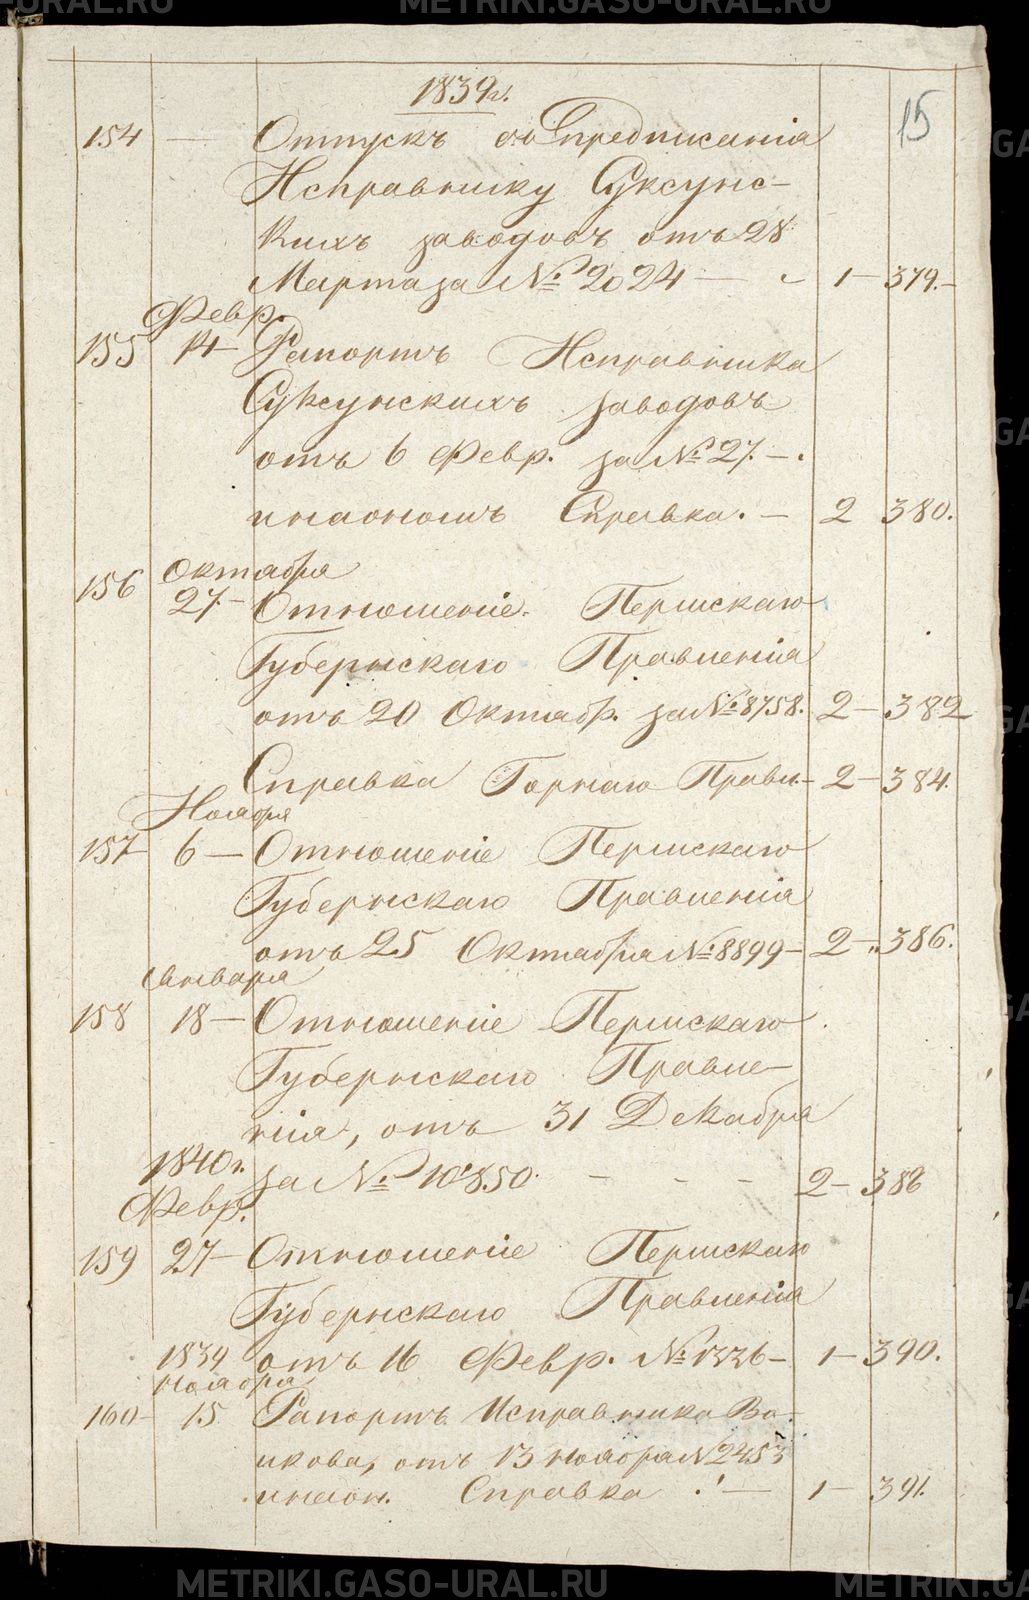 METRIKI.GASO-URAL.RU
1839 г.
15
154 — Отпускъ съ предписанія
Исправнику Суксунс-
кихъ заводовъ отъ 28
Марта за № 2024 — 1 — 379.
Февр.
155 14 — Рапортъ Исправника
Суксунскихъ заводовъ
отъ 6 Февр. за № 27. —
инаономъ Справка. — 2 380.
Октября
156 27. — Отношеніе Пермскаго
Губернскаго Правленія
отъ 20 Октяб. за № 8758. 2 — 382
Справка Горнаго Правл. — 2 — 384.
Ноября
157 6 — Отношеніе Пермскаго
Губернскаго Правленія
отъ 25 Октября № 8899 — 2 — 386.
Января
158 18 — Отношеніе Пермскаго
Губернскаго Правле-
нія, отъ 31 Декабря
за № 10850. — — — 2 — 388
1840 г.
Февр.
159 27 — Отношеніе Пермскаго
Губернскаго Правленія
отъ 16 Февр. № 1336 — 1 — 390.
1839
ноября
160 — 15 Рапортъ Исправника Во-
икова, отъ 13 ноября № 2453
инаон. Справка — 1 — 391.
METRIKI.GASO-URAL.RU